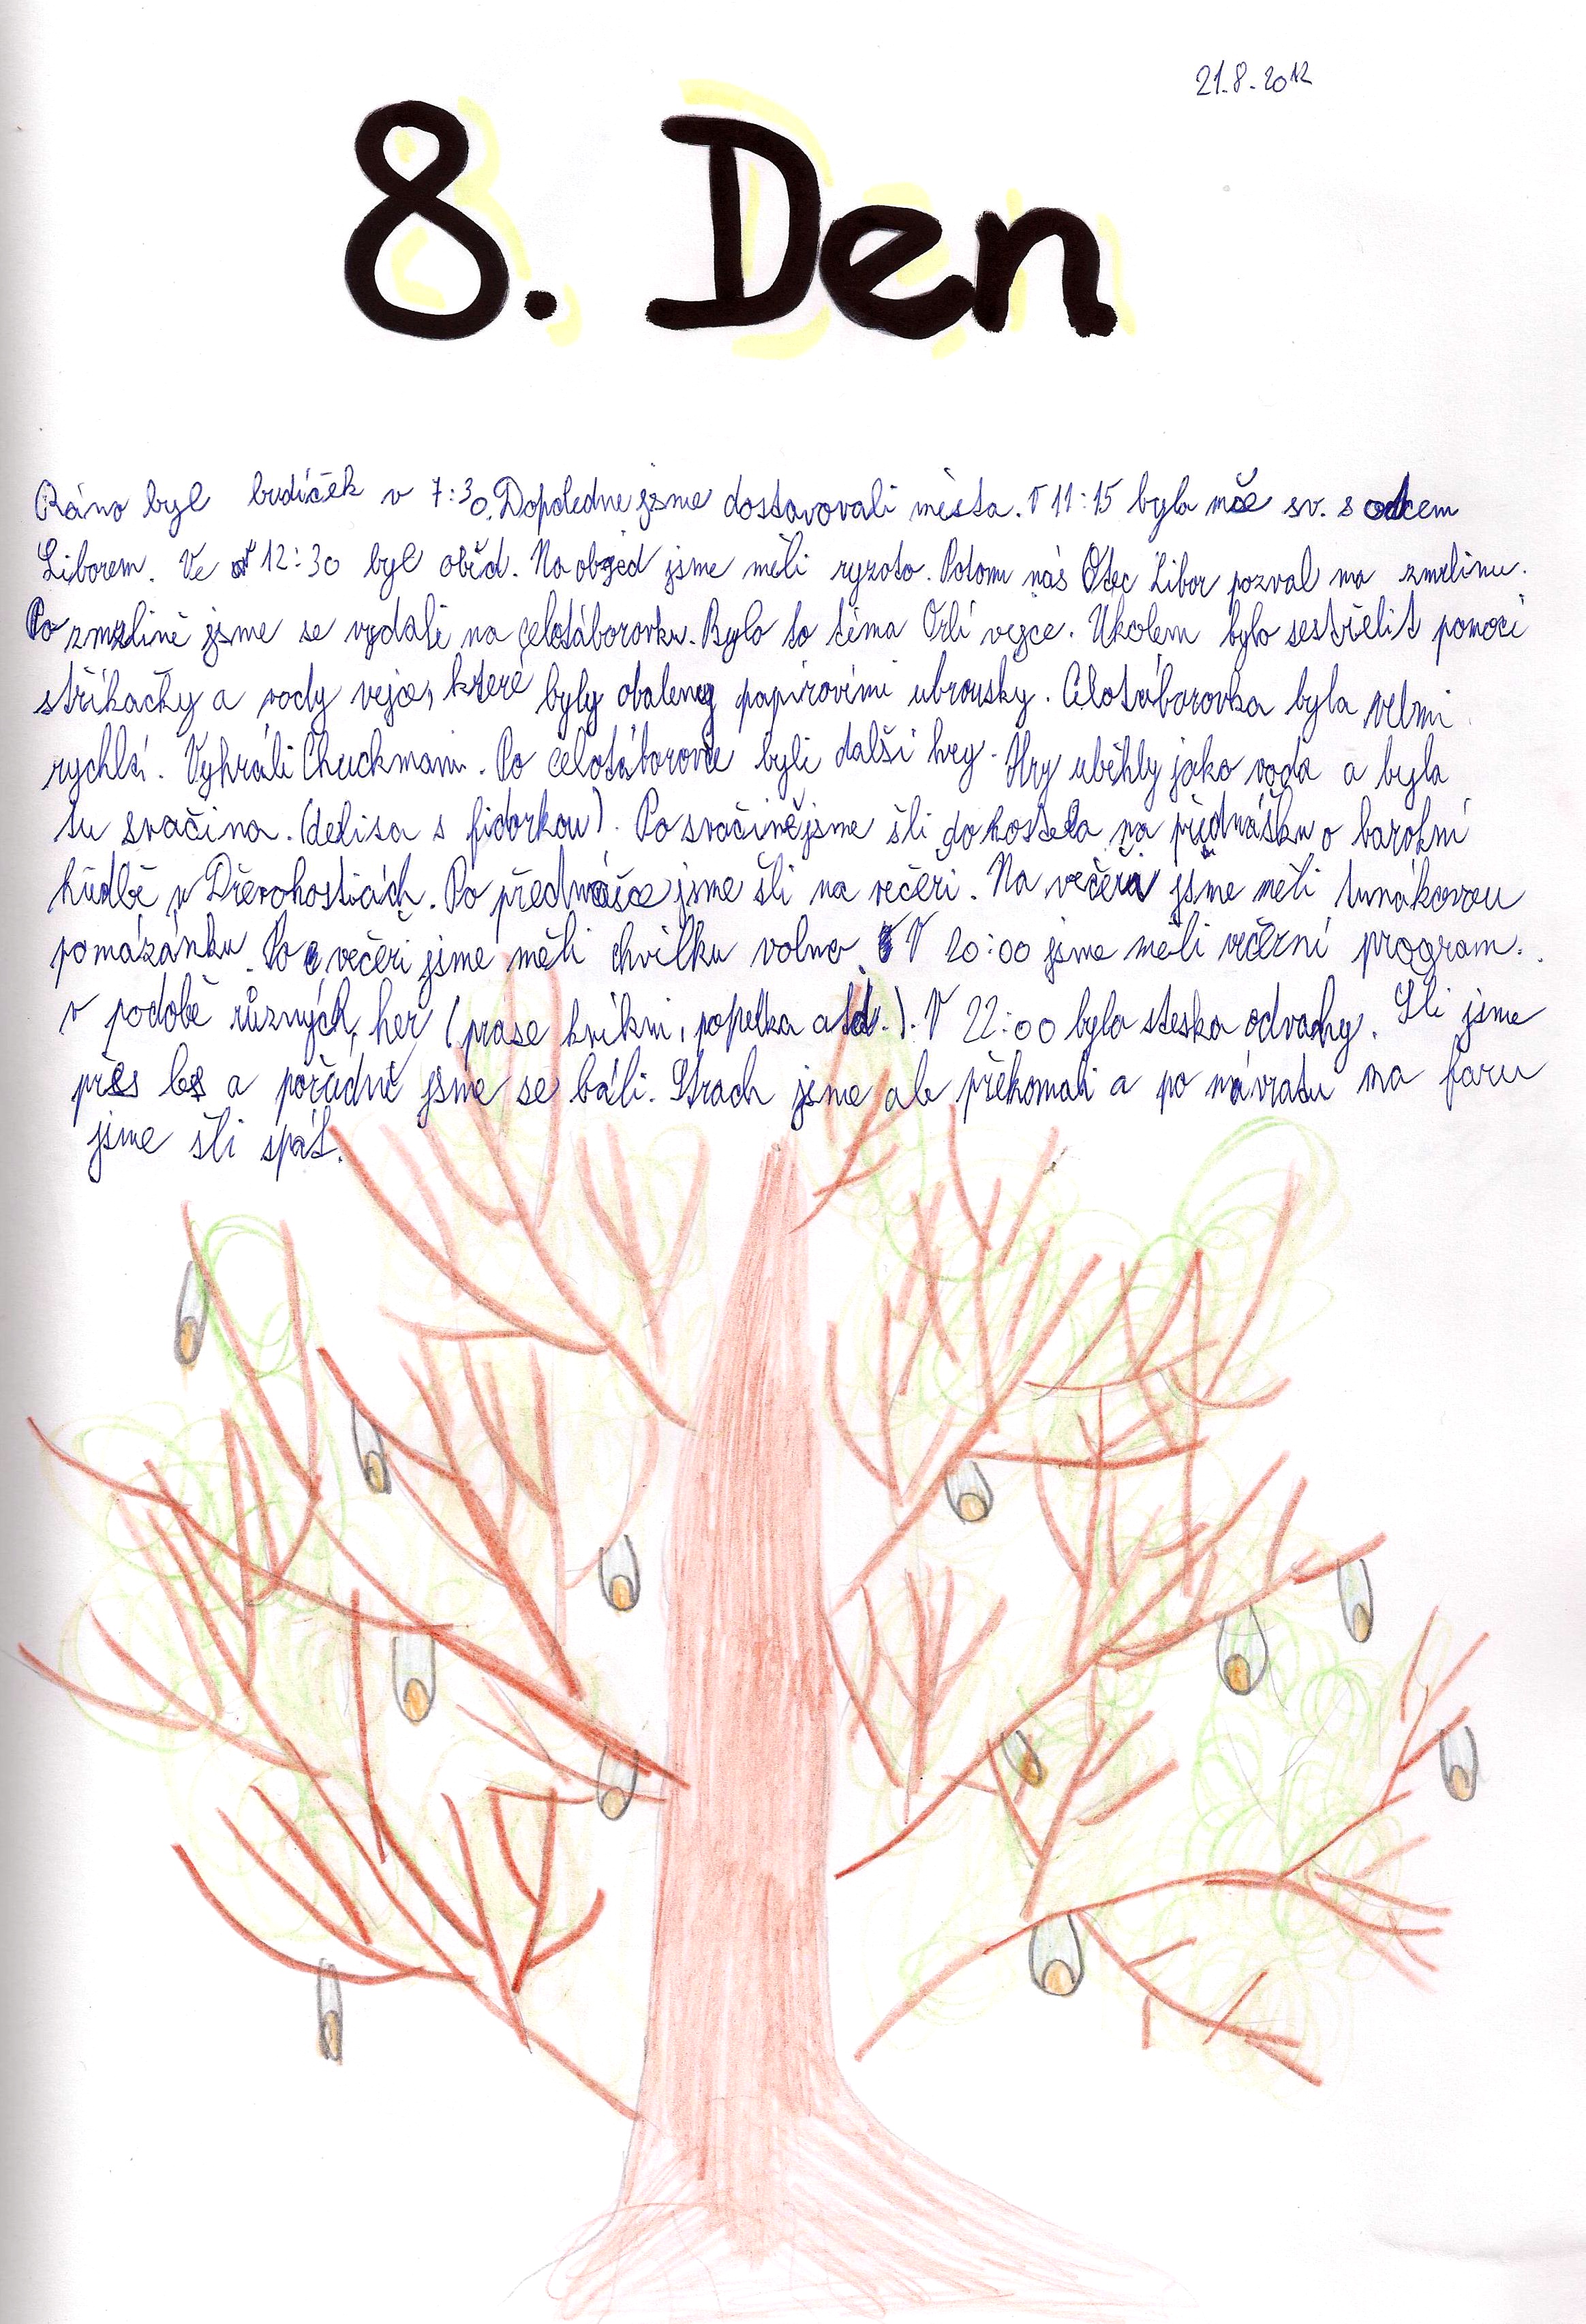 21.8.2012
8. Den
Ráno byl budíček v 7:30. Dopoledne jsme dostavovali města. V 11:15 byla mše sv. s otcem
Liborem. Ve 12:30 byl oběd. Na objed jsme měli ryzoto. Potom nás Otec Libor pozval na zmrlinu.
Po zmrzlině jsme se vydali na celotáborovku. Bylo to téma Orlí vejce. Úkolem bylo sestřelit pomocí
stříkačky a vody vejce, které byly obaleny papírovími ubrousky. Celotáborovka byla velmi
rychlá. Vyhráli Chuckmani. Po celotáborovce byli další hry. Hry uběhly jako voda a byla
tu svačina. (delisa s fidorkou). Po svačině jsme šli do kostela na přednášku o barokní
hudbě v Dřevohosticích. Po přednášce jsme šli na večeři. Na večeři jsme měli tunákovou
pomázánku. Po večeři jsme měli chvilku volno. V 20:00 jsme měli večerní program.
v podobě různých her (prase kvikni, popelka atd.). V 22:00 byla steska odvahy. Šli jsme
přes les a pořádně jsme se báli. Strach jsme ale překonali a po návratu na faru
jsme šli spát.